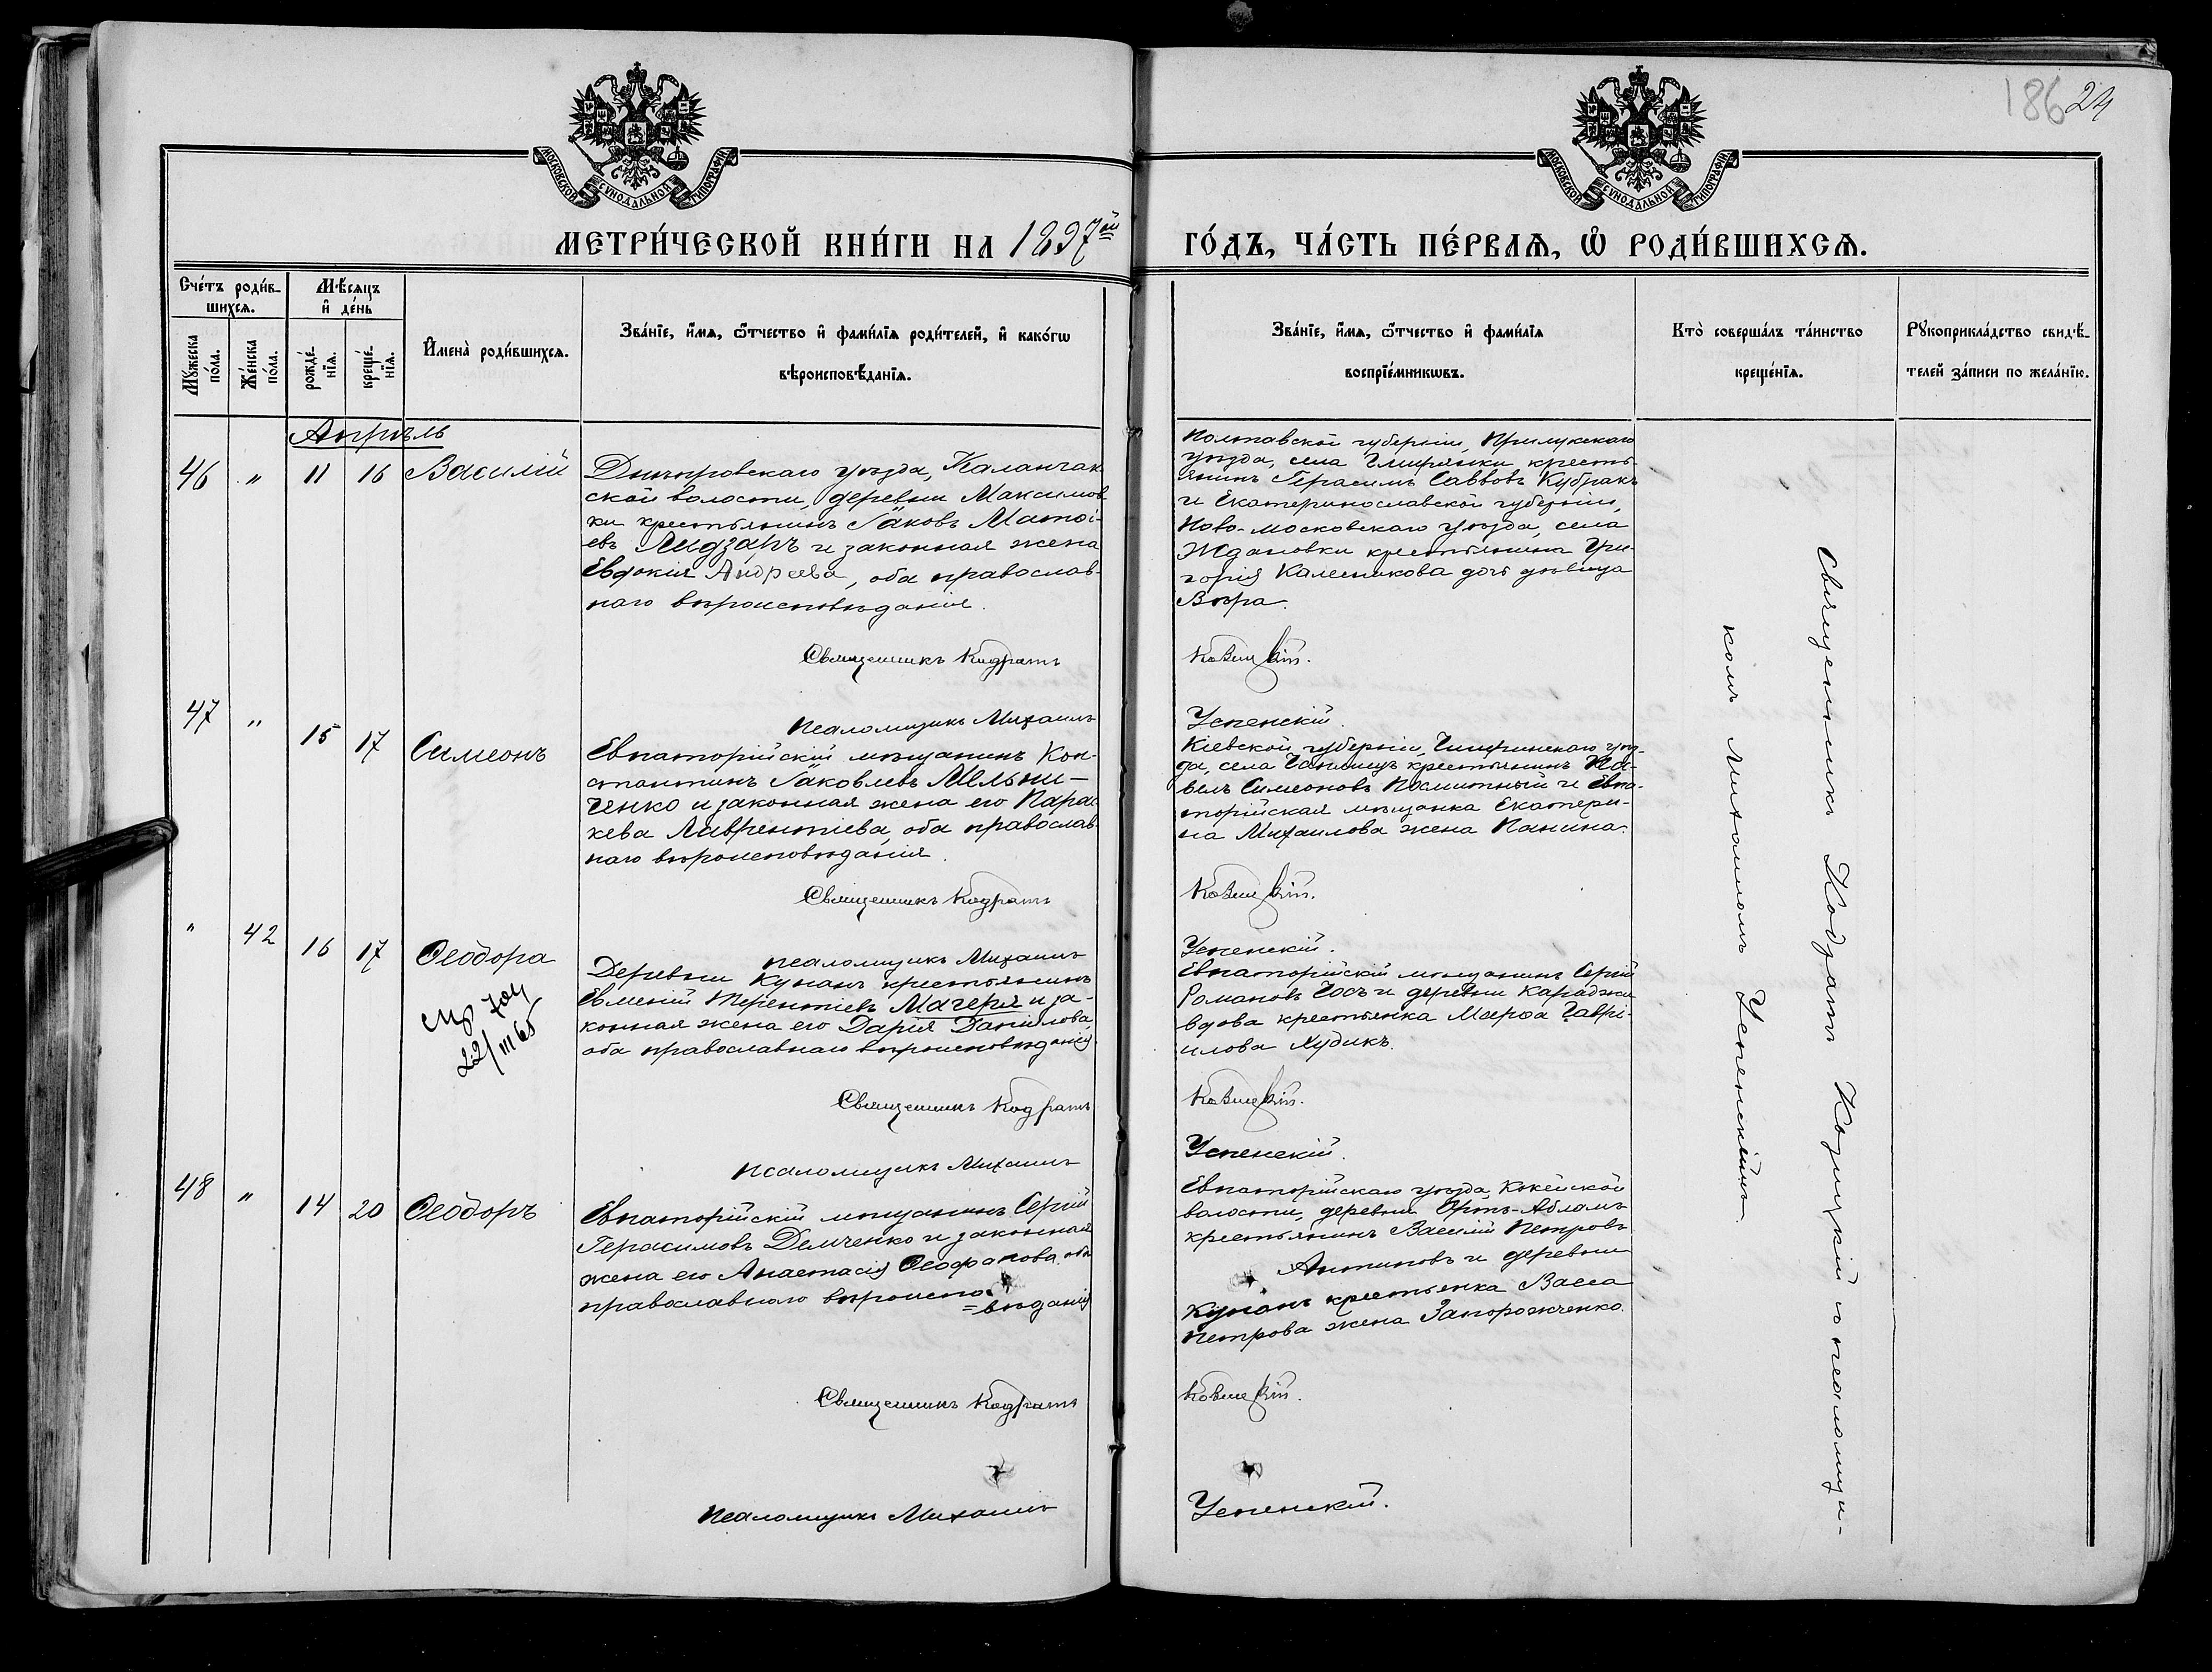 186 24
МОСКОВСКОЙ СѴНОДАЛЬНОЙ ТИПОГРАФІИ
МОСКОВСКОЙ СѴНОДАЛЬНОЙ ТИПОГРАФІИ
МЕТРИ́ЧЕСКОЙ КНИ́ГИ НА 1897ой ГО́ДЪ, ЧА́СТЬ ПЕ́РВАѦ, Ѡ҆ РОДИ́ВШИХСѦ.
Сче́тъ роди́в-
шихсѧ.
Мꙋ́жеска по́ла.
Же́нска по́ла.
Мѣ́сѧцъ
и҆ де́нь
рожде́-
нїѧ.
креще́-
нїѧ.
И҆мена̀ роди́вшихсѧ.
Зва́нїе, и҆́мѧ, ѻ҆́тчество и҆ фами́лїѧ роди́телей, и҆ како́гѡ
вѣроисповѣ́данїѧ.
Зва́нїе, и҆́мѧ, ѻ҆́тчество и҆ фами́лїѧ
воспрїе́мникѡвъ.
Кто̀ соверша́лъ та́инство
креще́нїѧ.
Рꙋкоприкла́дство свидѣ́-
телей за́писи по жела́нїю.
Апрѣль
46 " 11 16 Василій
Днѣпровскаго уѣзда, Каланчак
ской волости, деревни Максимов
ки крестьянинъ Іаковъ Матѳі-
евъ Лидзарь и законная жена
Евдокія Андреева, оба православ-
наго вѣроисповѣданія.
Священникъ Кодратъ
Псаломщикъ Михаилъ
Полтавской губерніи, Прилукскаго
уѣзда, села Гмирянки кресть-
янинъ Герасимъ Саввовъ Кубракъ
и Екатеринославской губерніи,
Ново-московскаго уѣзда, села
Ждановки крестьянина Гри-
горія Калесникова дочь дѣвица
Вѣра.
Успенскій.
47 " 15 17 Симеонъ
Евпаторійскій мѣщанинъ Кон-
стантинъ Іаковлевъ Мельни-
ченко и законная жена его Парас
кева Лаврентіева, оба православ-
наго вѣроисповѣданія.
Священникъ Кодратъ
Псаломщикъ Михаилъ
Кіевской губерніи, Чигиринскаго уѣз-
да, села крестьянинъ Па-
велъ Симеоновъ и Евпа-
торійская мѣщанка Екатери-
на Михаилова жена Панина.
Успенскій.
" 42 16 17 Ѳеодора
22/III 65
Деревни Кунанъ крестьянинъ
Евменій Терентіевъ Мачеря и за-
конная жена его Дарія Даніилова,
оба православнаго вѣроисповѣданія.
Священникъ Кодратъ
Псаломщикъ Михаилъ
Евпаторійскій мѣщанинъ Сергій
Романовъ и деревни Караджи
вдова крестьянка Марѳа Гаврі-
илова Худикъ.
Успенскій.
48 " 14 20 Ѳеодоръ
Евпаторійскій мѣщанинъ Сергій
Герасимовъ Демченко и законная
жена его Анастасія Ѳеофанова, оба
православнаго вѣроиспо-
=вѣданія
Священникъ Кодратъ
Псаломщикъ Михаилъ
Евпаторійскаго уѣзда,
волости, деревни
крестьянинъ Василій Петровъ
Антиповъ и деревни
Кунанъ крестьянка Васса
Петрова жена Запорожченко.
Успенскій.
Священникъ Кодратъ и псаломщи-
комъ Михаиломъ Успенскимъ.